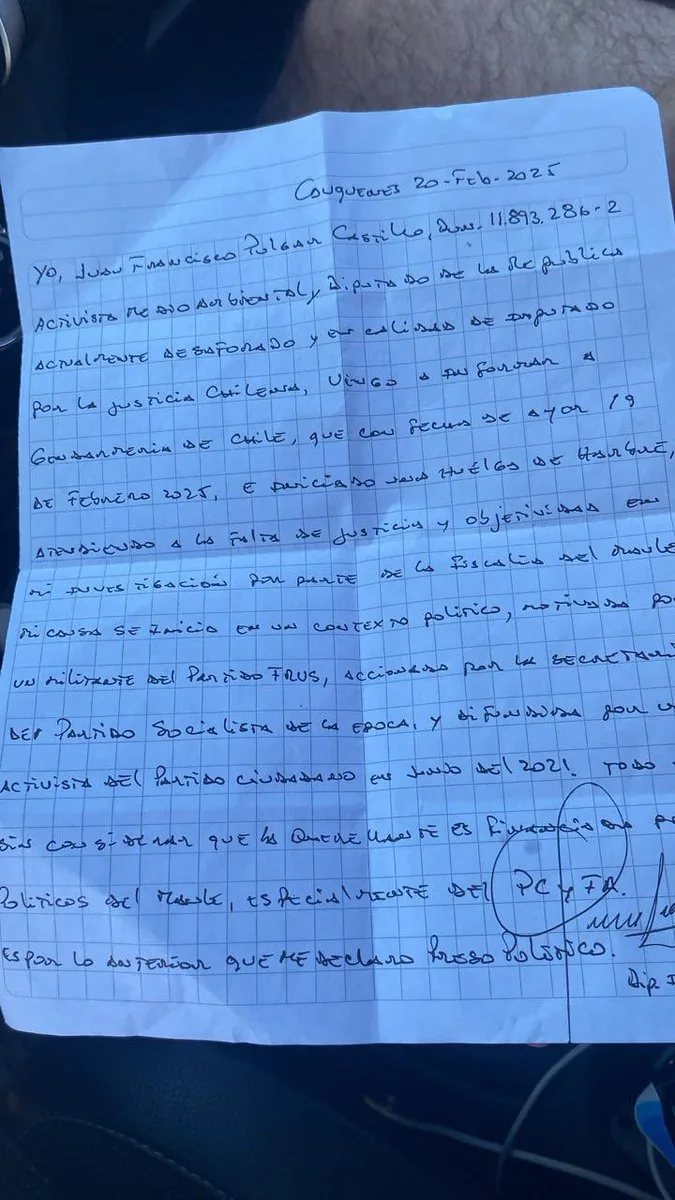 Cauquenes 20-Feb-2025
Yo, Juan Francisco Pulgar Castillo, Run. 11.893.286-2
Activista Medio Ambiental, y Diputado de la Republica
actualmente desaforado y en calidad de imputado
por la justicia Chilena, vengo a informar a
Gendarmeria de Chile, que con fecha de ayer 19
de Febrero 2025, e iniciado una Huelga de Hambre,
atendiendo a la falta de justicia y objetividad en
mi investigación por parte de la Fiscalia del Maule
mi causa se inicio en un contexto político, motivada po
un militante del Partido FRVS, accionado por la secretari
del Partido Socialista de la epoca, y difundida por u
activista del Partido Ciudadano en Junio del 2021. Todo
sin considerar que la Querellante es Funcionaria
Politicos del Maule, especialmente del PC y FA.
Es por lo anterior que me declaro Preso Político.
Dip. J